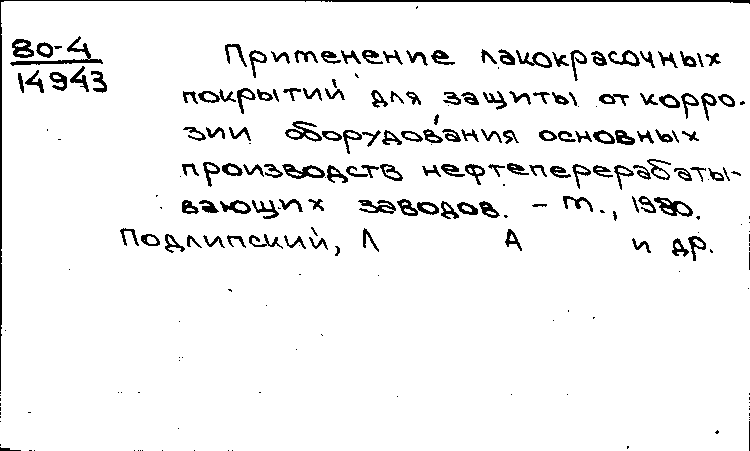 80-4
14943
Применение лакокрасочных
покрытий для защиты от корро-
зии оборудования основных
производств нефтеперерабаты-
вающих заводов. – М., 1980.
Подлипский, Л А и др.